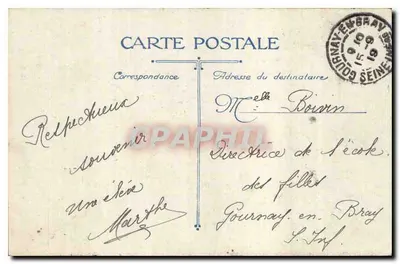 CARTE POSTALE
Correspondance
Adresse du destinataire
Respectueux
souvenir
une élève
Marthe
Melle Boivin
Directrice de l'école
des filles
Gournay-en-Bray
S. Inf
GOURNAY-EN-BRAY
9 10
15-9
19
SEINE